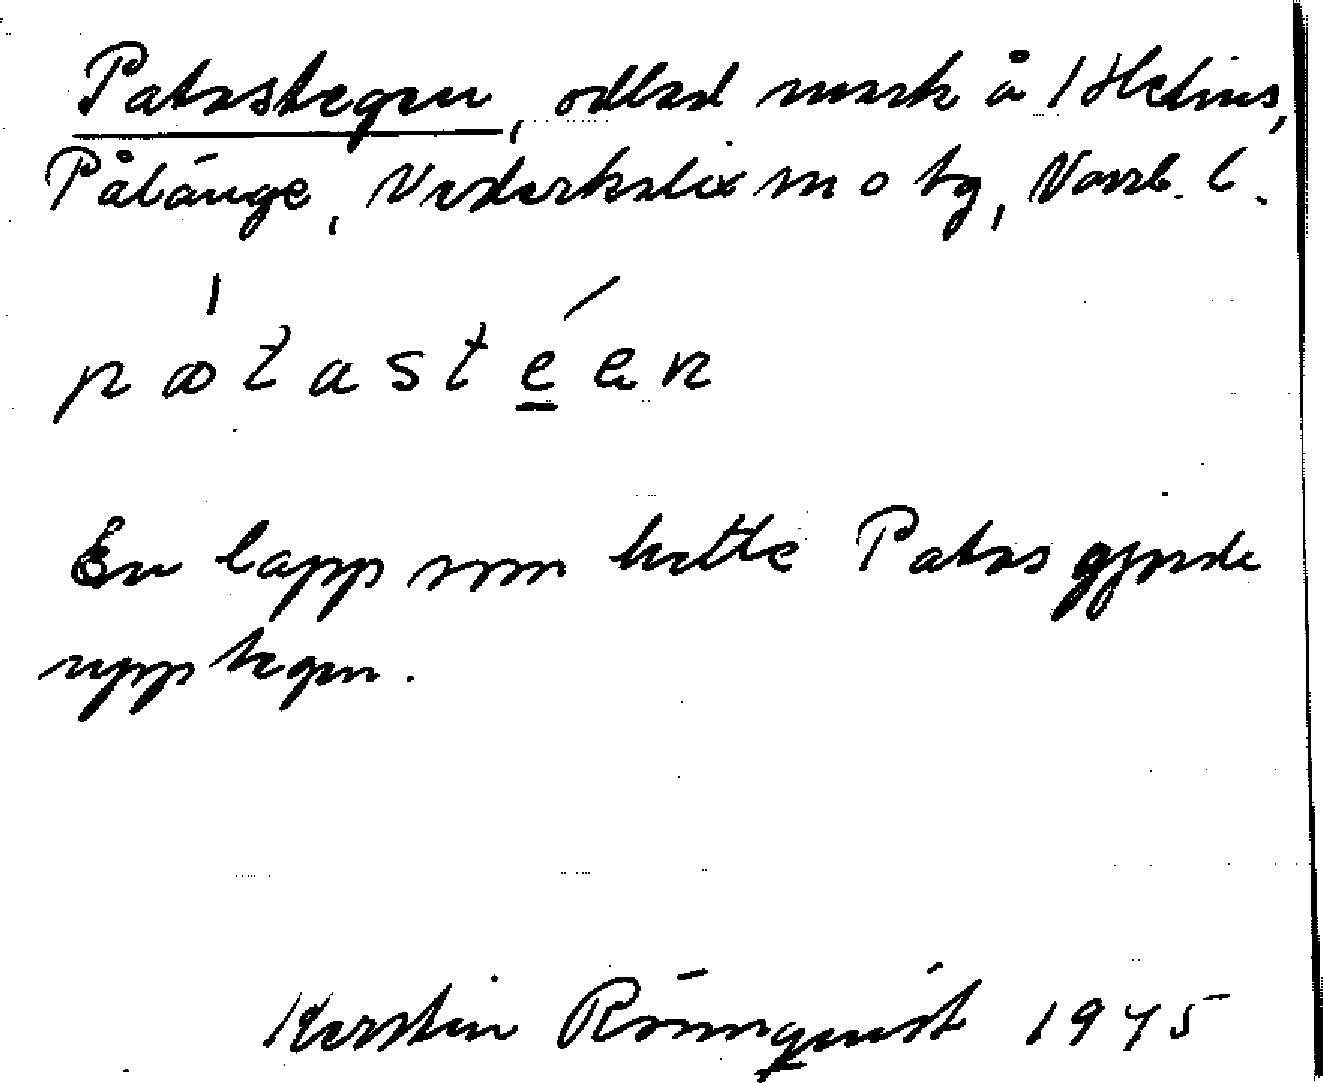 Patastegen, odlad mark å 1 Hedins,
Pålänge, Nederkalix sn o tg, Norrb. l.
pɷtastéen
En lapp som hette Patas gjorde
upp tegen.
Kerstin Rönnquist 1945